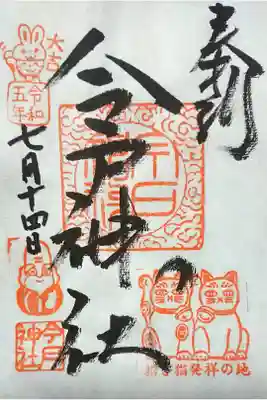 奉拝
今戸神社
大吉
令和
五年
七月十四日
今戸
神社
招き猫発祥の地